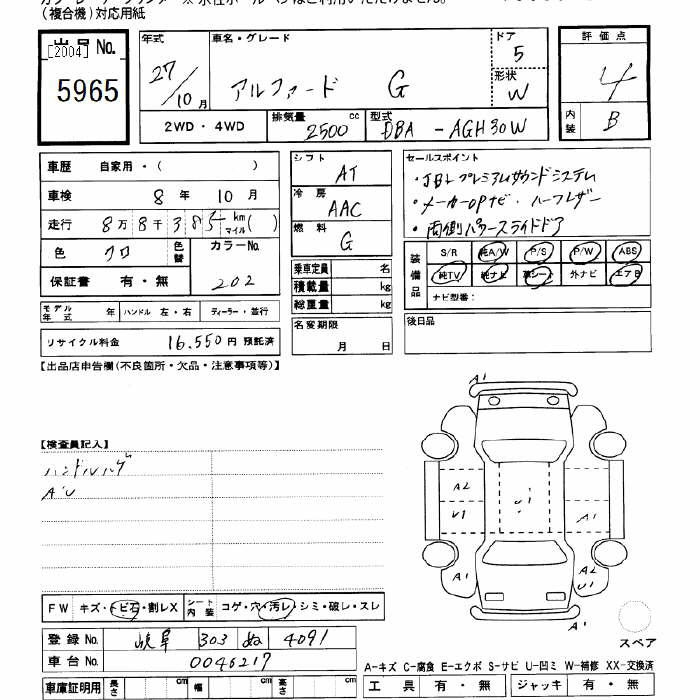 (複合機)対応用紙
出品 No. [2004] 5965
年式 27/10月
車名・グレード アルファード G
ドア 5
形状 W
評価点 4
内装 B
2WD・4WD
排気量 2500 cc
型式 DBA-AGH30W
車歴 自家用・( )
車検 8年 10月
走行 8万8千385 km マイル( )
色 クロ 色替
カラーNo. 202
保証書 有・無
モデル年式 年 ハンドル 左・右 ディーラー・並行
リサイクル料金 16,550円 預託済
シフト AT
冷房 AAC
燃料 G
乗車定員 名
積載量 kg
総重量 kg
名変期限 月 日
セールスポイント
・JBLプレミアムサウンドシステム
・メーカーOPナビ・ハーフレザー
・両側パワースライドドア
装備品 S/R 純A/W P/S P/W ABS
純TV 純ナビ 革シート 外ナビ エアB
ナビ型番:
後日品
【出品店申告欄(不良箇所・欠品・注意事項等)】
【検査員記入】
ハンドルハゲ
A'U
A1
A2
U1
U1
A1
A1
A2
U1
A1
FW キズ・トビ石・割レX シート内装 コゲ・穴・汚レ・シミ・破レ・スレ
登録 No. 岐阜 303 ぬ 4091
車台 No. 0046217
車庫証明用 長さ cm 幅 cm 高さ cm
スペア
A-キズ C-腐食 E-エクボ S-サビ U-凹ミ W-補修 XX-交換済
工具 有・無 ジャッキ 有・無